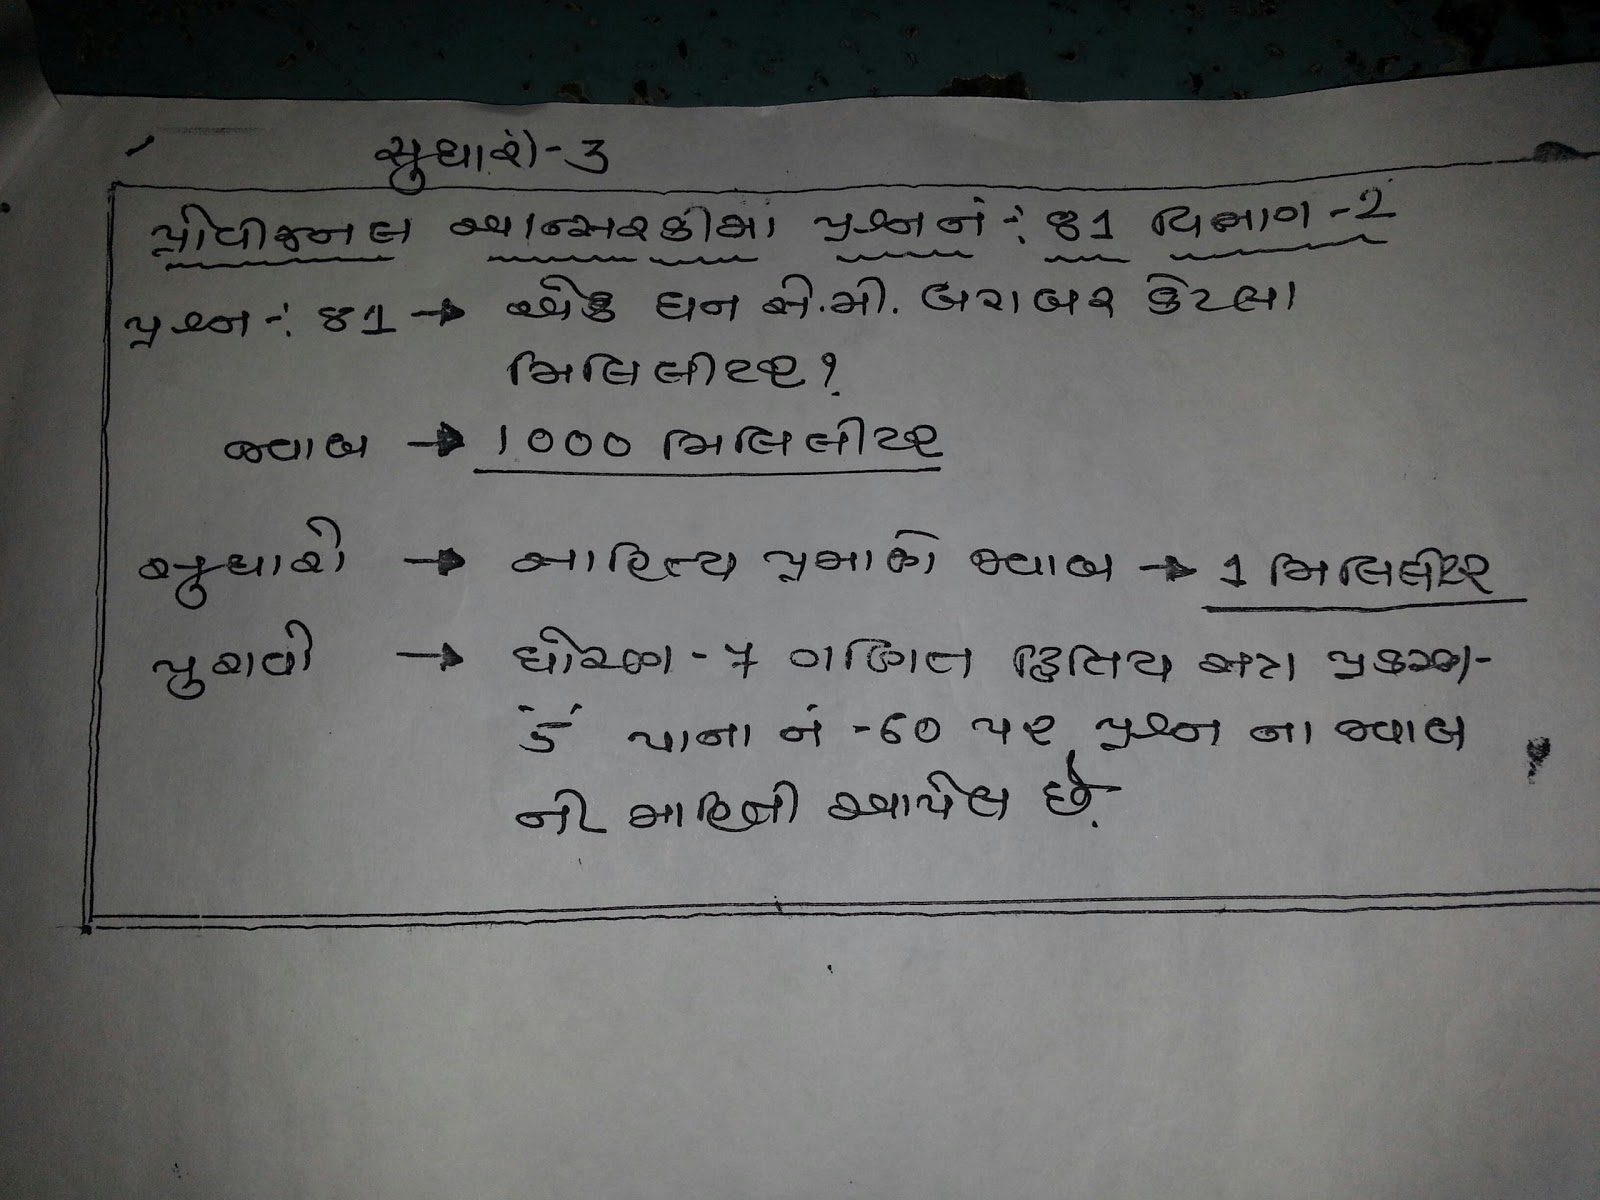 સુધારો-3
પ્રોવીઝનલ આન્સરકીમાં પ્રશ્ન નં-: 81 વિભાગ-2
પ્રશ્ન-: 81 → એક ઘન સે.મી. બરાબર કેટલા
મિલિલીટર?
જવાબ → 1000 મિલિલીટર
સુધારો → સાહિત્ય પ્રમાણે જવાબ → 1 મિલિલીટર
પુરાવો → ધોરણ-7 ગણિત દ્વિતિય સત્ર પ્રકરણ-
પાના નં-60 પર પ્રશ્ન ના જવાબ
ની માહિતી આપેલ છે.